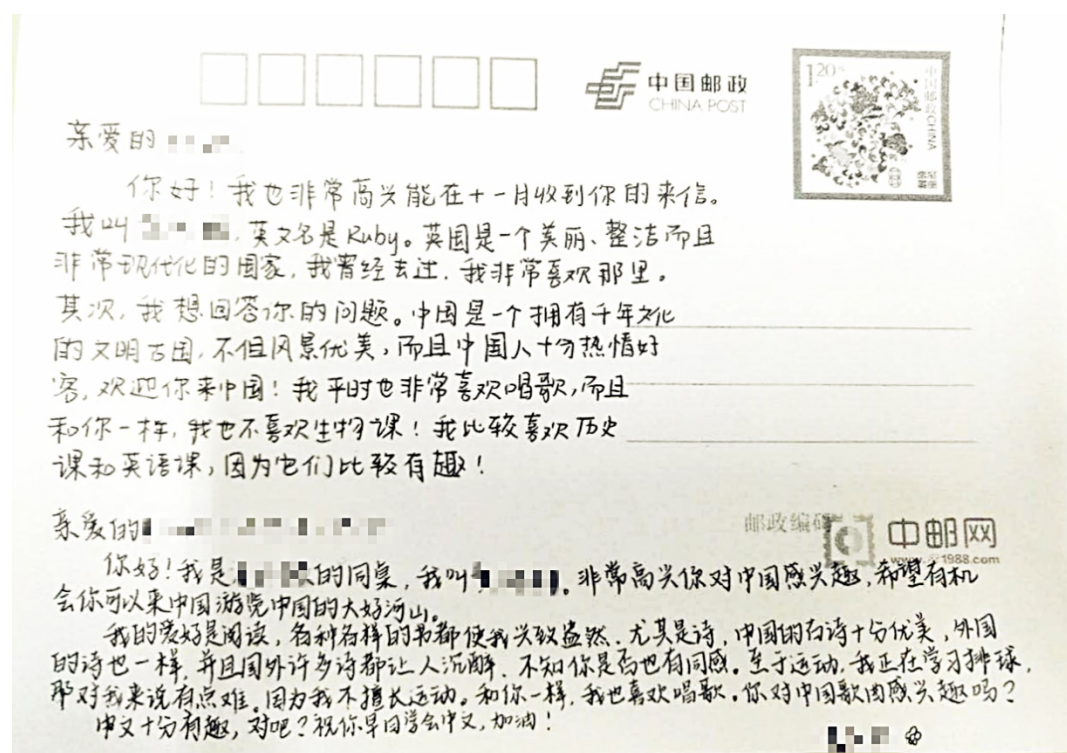 中国邮政
CHINA POST
1.20元
中国邮政 CHINA
亲爱的
你好！我也非常高兴能在十一月收到你的来信。
我叫 ，英文名是Ruby。英国是一个美丽、整洁而且
非常现代化的国家，我曾经去过，我非常喜欢那里。
其次，我想回答你的问题。中国是一个拥有千年文化
的文明古国，不但风景优美，而且中国人十分热情好
客，欢迎你来中国！我平时也非常喜欢唱歌，而且
和你一样，我也不喜欢生物课！我比较喜欢历史
课和英语课，因为它们比较有趣！
亲爱的
邮政编码
中邮网
www.e1988.com
你好！我是 的同桌，我叫 。非常高兴你对中国感兴趣，希望有机
会你可以来中国游览中国的大好河山。
我的爱好是阅读，各种各样的书都使我兴致盎然，尤其是诗，中国的古诗十分优美，外国
的诗也一样，并且国外许多诗都让人沉醉，不知你是否也有同感。至于运动，我正在学习排球，
那对我来说有点难。因为我不擅长运动。和你一样，我也喜欢唱歌。你对中国歌曲感兴趣吗？
中文十分有趣，对吧？祝你早日学会中文，加油！